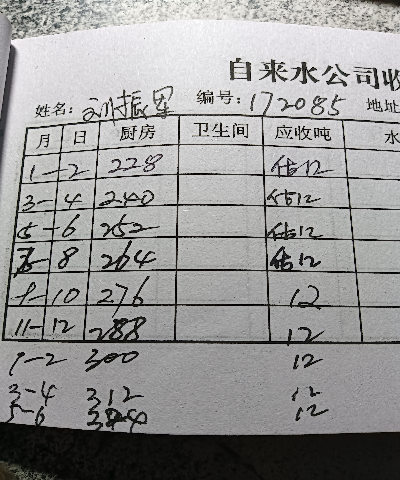 自来水公司收
姓名: 刘振军 编号: 172085 地址
月 日 厨房 卫生间 应收吨 水
1-2 228 估12
3-4 240 估12
5-6 252 估12
7-8 264 估12
9-10 276 12
11-12 288 12
1-2 300 12
3-4 312 12
5-6 324 12